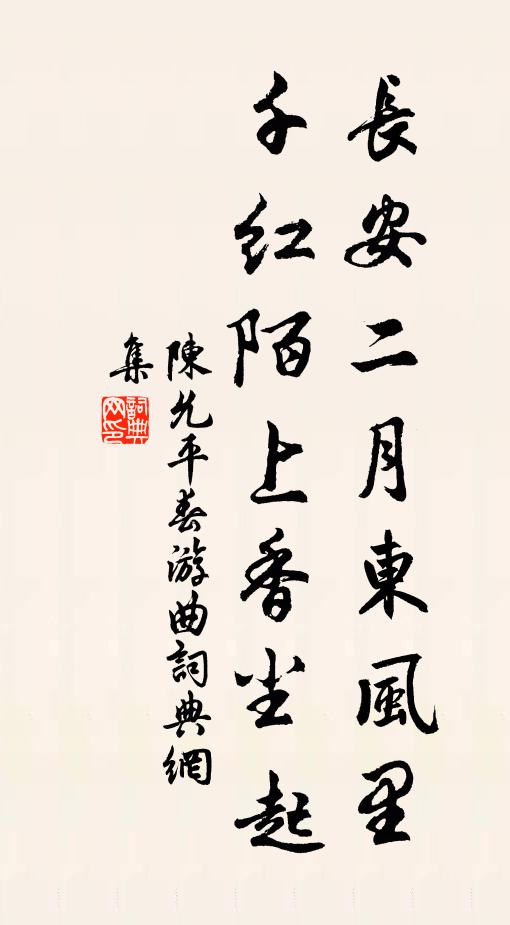 長安二月東風里
千红陌上香尘起
陳允平春游曲詞典網
集
詞典网印